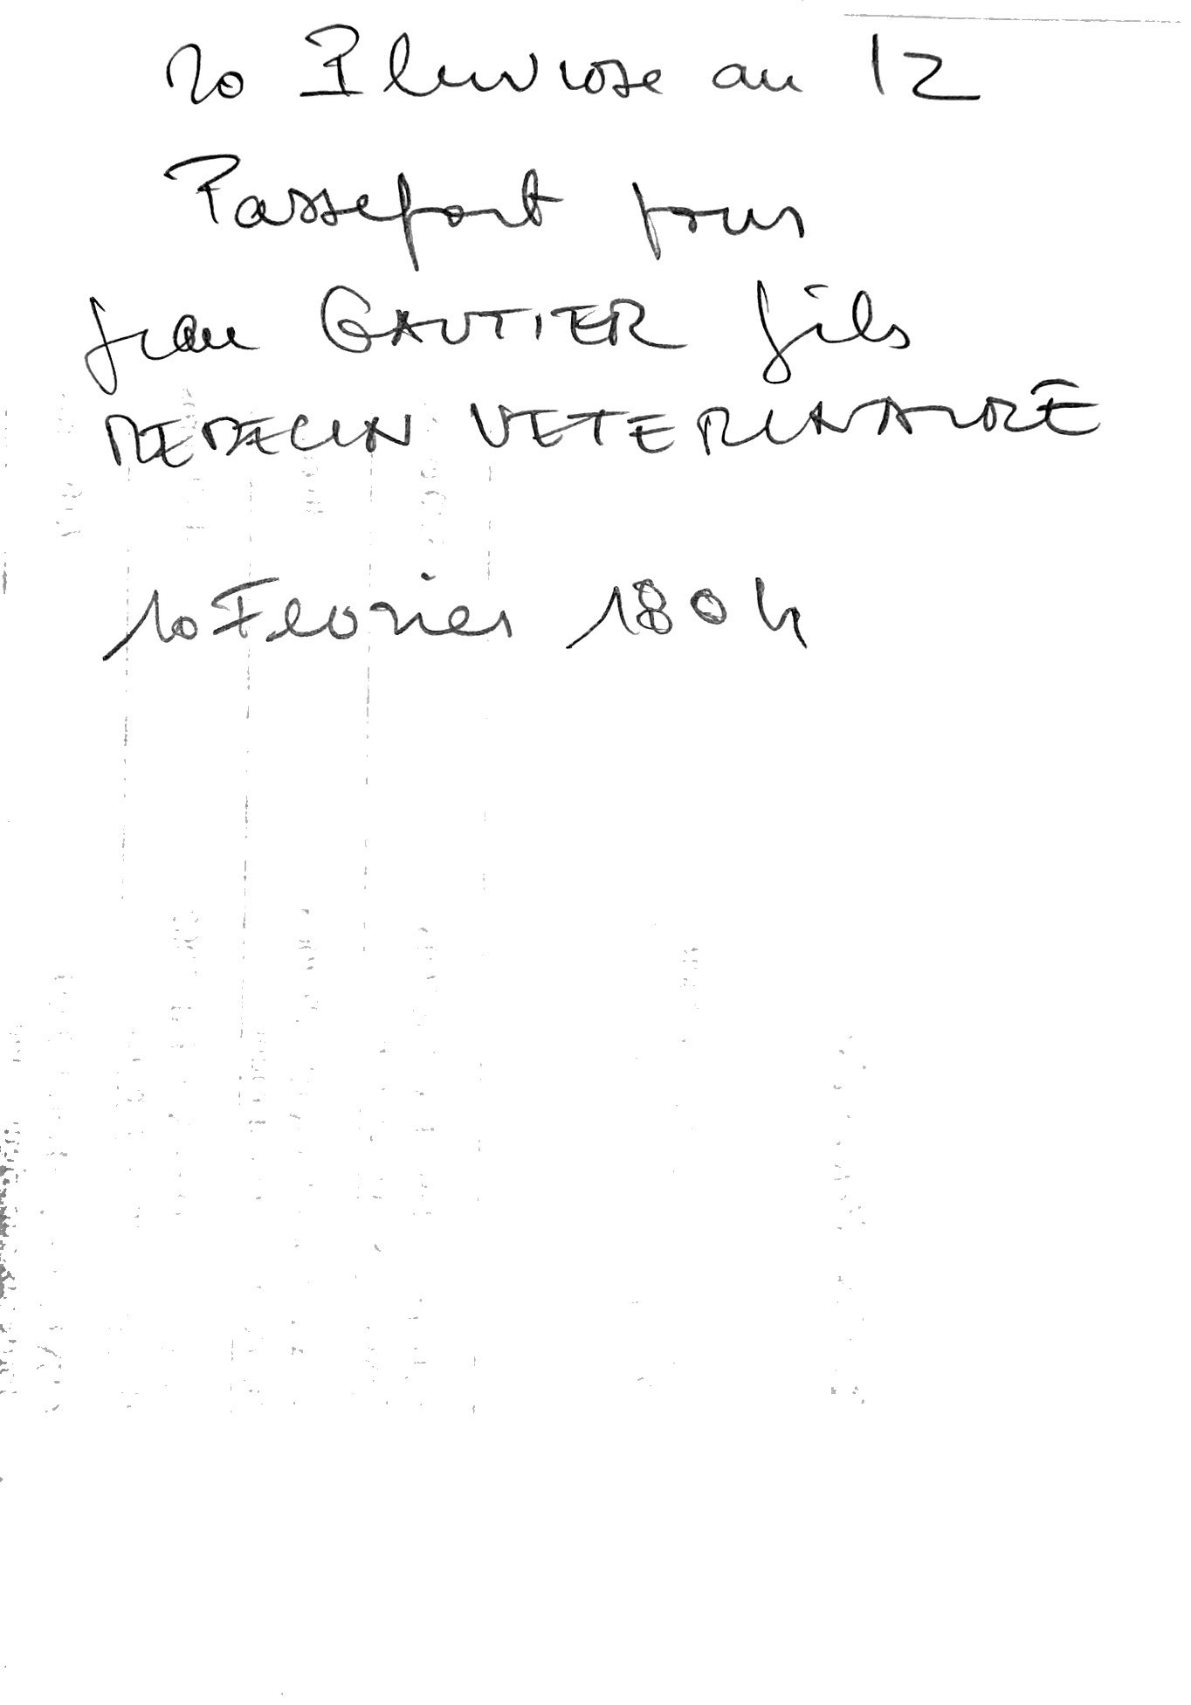 20 Pluviose an 12
Passeport pour
Jean GAUTIER fils
MEDECIN VETERINAIRE
10 Fevrier 1804